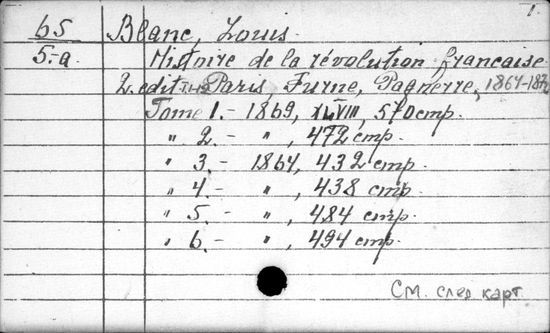 1.
65 Blanc, Louis.
5-a Histoire de la révolution française.
2. edit. Paris, Furne, Pagnerre,
Tome 1. - 1869, 570 стр.
" 2. - " , 472 стр.
" 3. - 1864, 432 стр.
" 4. - " , 438 стр.
" 5. - " , 484 стр.
" 6. - " , 494 стр.
См. след карт.